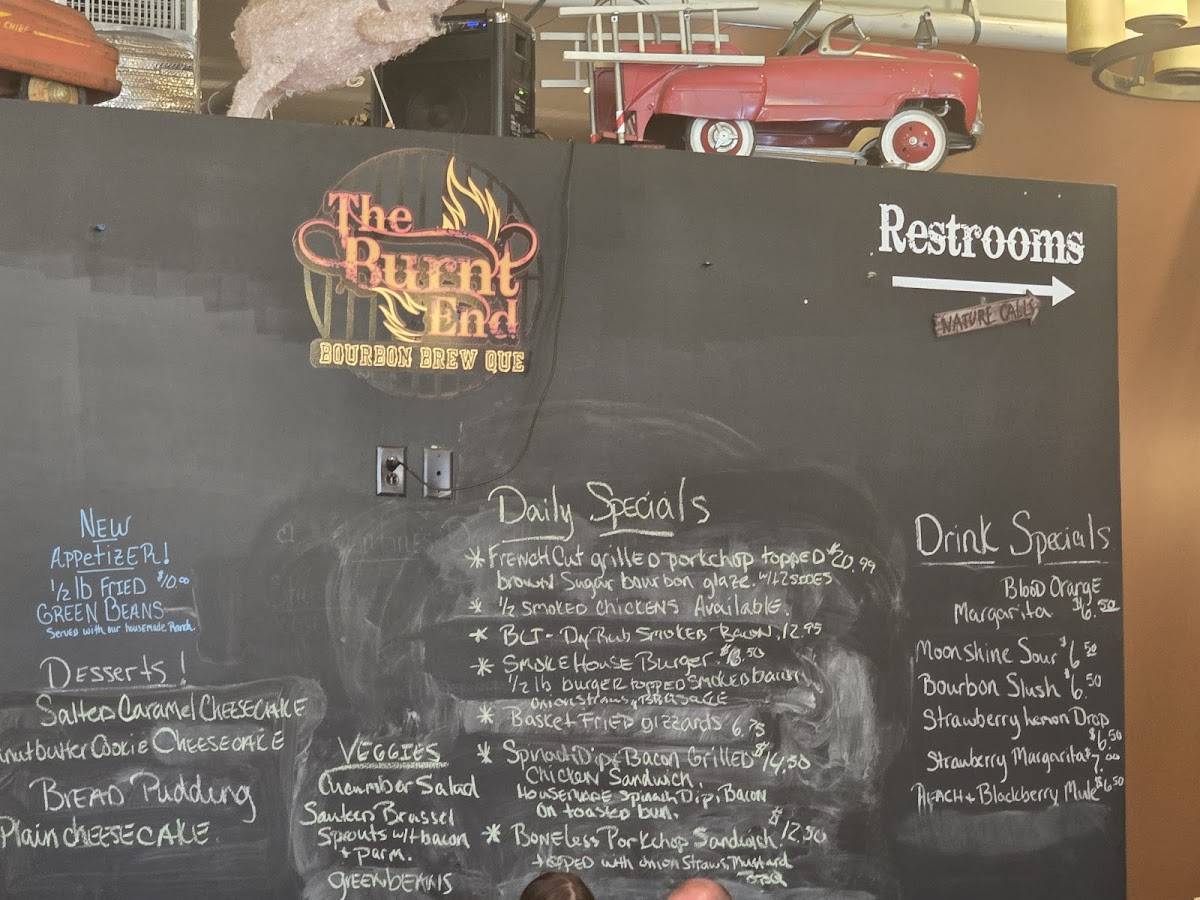 CHIEF
The
Burnt
End
BOURBON BREW QUE
Restrooms
NATURE CALLS
NEW
APPetizER!
1/2 lb FRIED $10.00
GREEN BEANS
Served with our housemade Ranch.
Desserts!
Salted Caramel CHEESECAKE
nutbutter Cookie CHEESECAKE
BREAD Pudding
Plain CHEESECAKE.
VEGGIES
Cucumber Salad
Sauteed Brussel
Sprouts w/ bacon
+ parm.
greenbeans
Daily Specials
* FRENCH CUT grilled porkchop topped $20.99
brown Sugar bourbon glaze. w/ 2 SIDES
* 1/2 SMOKED CHICKENS Available.
* BLT - Dry Rub SMOKED BACON. 12.95
* SMOKEHOUSE BURGER. $13.50
1/2 lb burger topped smoked bacon,
onion straws,
* Basket FRIED gizzards 6.75
* Spinach Dip + Bacon Grilled $14.50
Chicken Sandwich,
Housemade Spinach Dip, Bacon
on toasted bun.
* BONELESS Porkchop Sandwich. $12.50
topped with onion straws, Mustard
Drink Specials
Blood Orange
Margarita $6.50
Moonshine Sour $6.50
Bourbon Slush $6.50
Strawberry Lemon Drop
$6.50
Strawberry Margarita $7.00
PEACH + Blackberry Mule $6.50